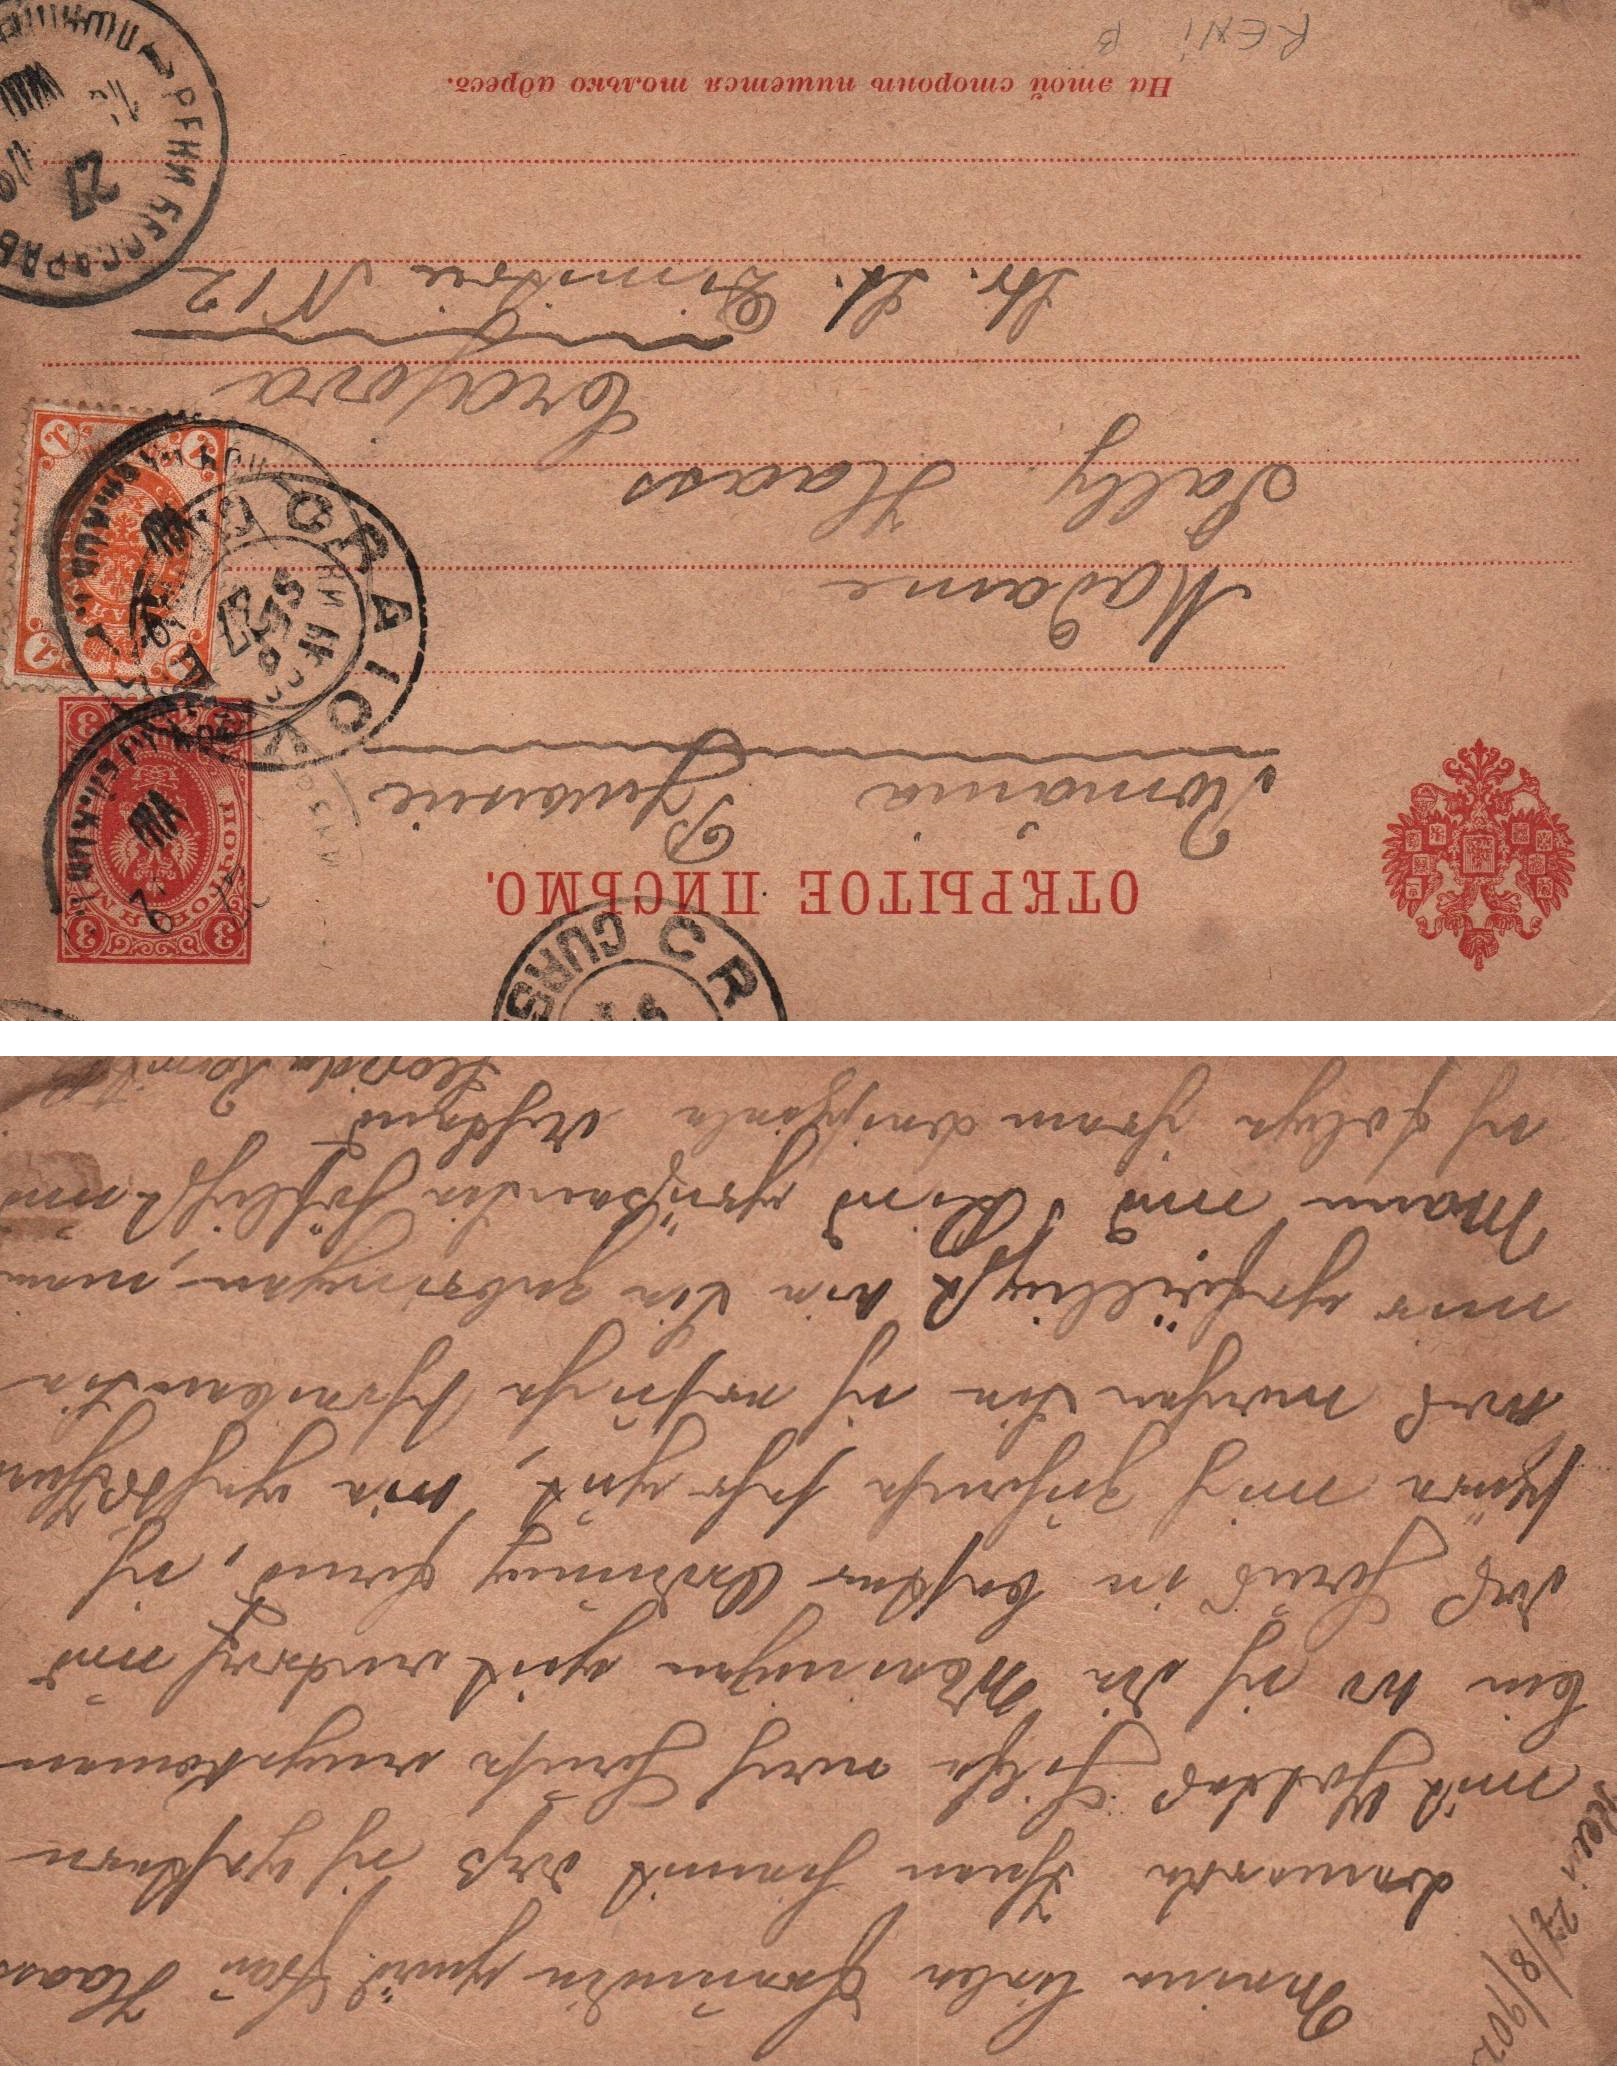 Reni 27/8/902
Meine liebe Freundin gnäd. Frau Haass
Bemerke Ihnen hiemit daß ich gestern
mit Gottes Hilfe nach Hause angekomen
bin wo ich die Meinigen gut antraf und
das Haus in bester Ordnung fand, ich
spüre mich zuhause sehr gut, wie gehts Ihnen
was machen Sie ich ersuche schreiben Sie
mir gefälligst wie Sie zubringen, mein
Mann und Kind grüßen Sie höflichst und
ich folge ihrem Beispiele achtend
Florida
CURS
3 3
ОТКРЫТОЕ ПИСЬМО.
România Румыніе
CRAIOVA
SEP
1 1
Madame
Sally Haass
Crajova
Str. St. Dimitrie N 12
РЕНИ БЕССАРАБ
27
VIII
На этой сторонѣ пишется только адресъ.
RENI B